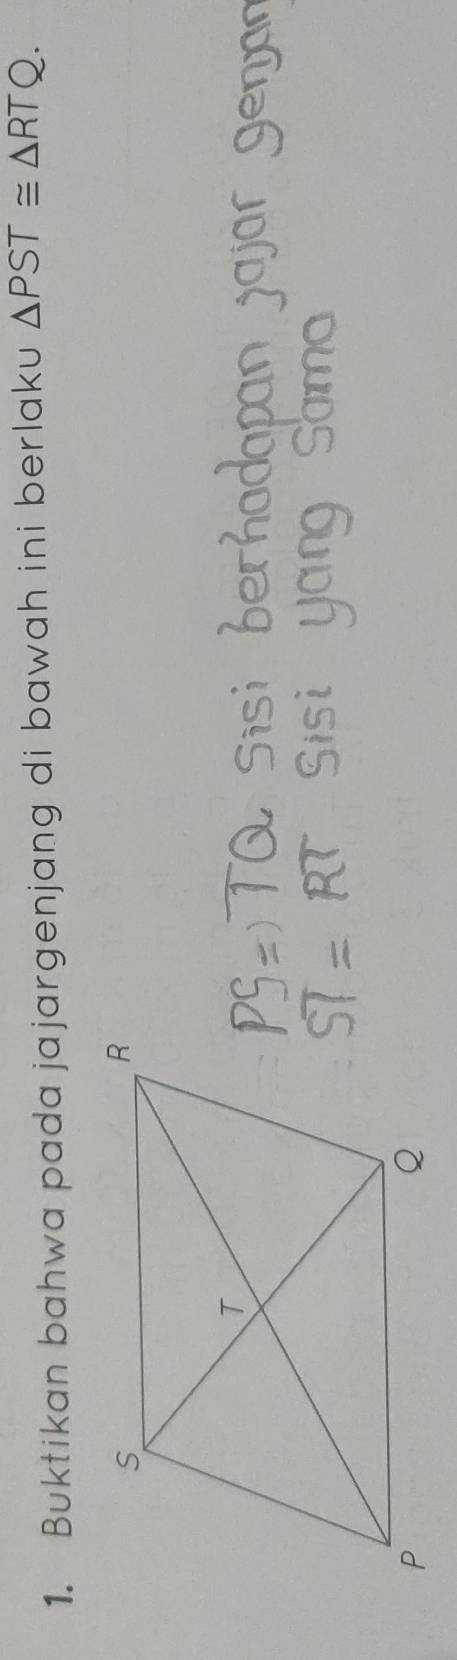 1. Buktikan bahwa pada jajargenjang di bawah ini berlaku △PST ≅ △RTQ.
S
R
T
P
Q
PS = TQ sisi berhadapan jajar genjan
ST = RT sisi yang sama